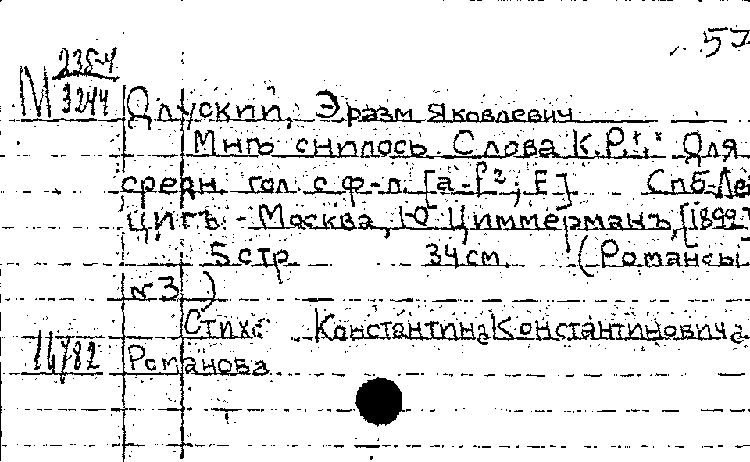 57
М 235-4
3244
Длуский, Эразм Яковлевич
Мнѣ снилось. Слова К.Р. Для
средн. гол. с ф-п. [a-f²; E]. Спб-Лей
цигъ - Москва, Ю. Циммерманъ, [1899]
5 стр. 34 см. (Романсы
№3)
Стихи Константина Константиновича
16782 Романова.